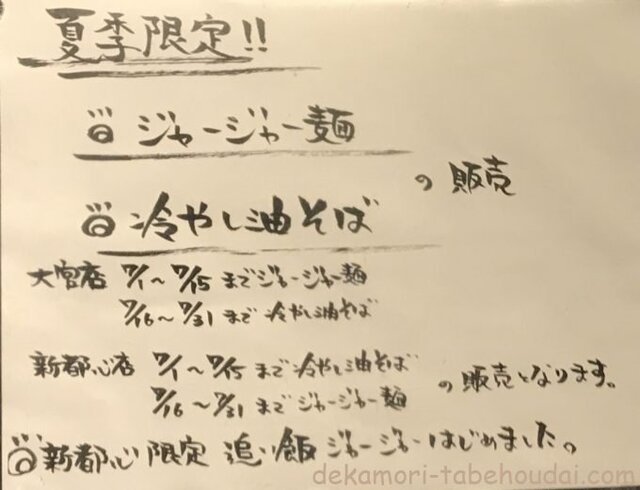 夏季限定!!
ジャージャー麺
の販売
冷やし油そば
大宮店 7/1〜7/15 までジャージャー麺
7/16〜7/31 まで冷やし油そば
新都心店 7/1〜7/15 まで冷やし油そば
の販売となります。
7/16〜7/31 までジャージャー麺
新都心限定 追い飯ジャージャーはじめました。
dekamori-tabehoudai.com